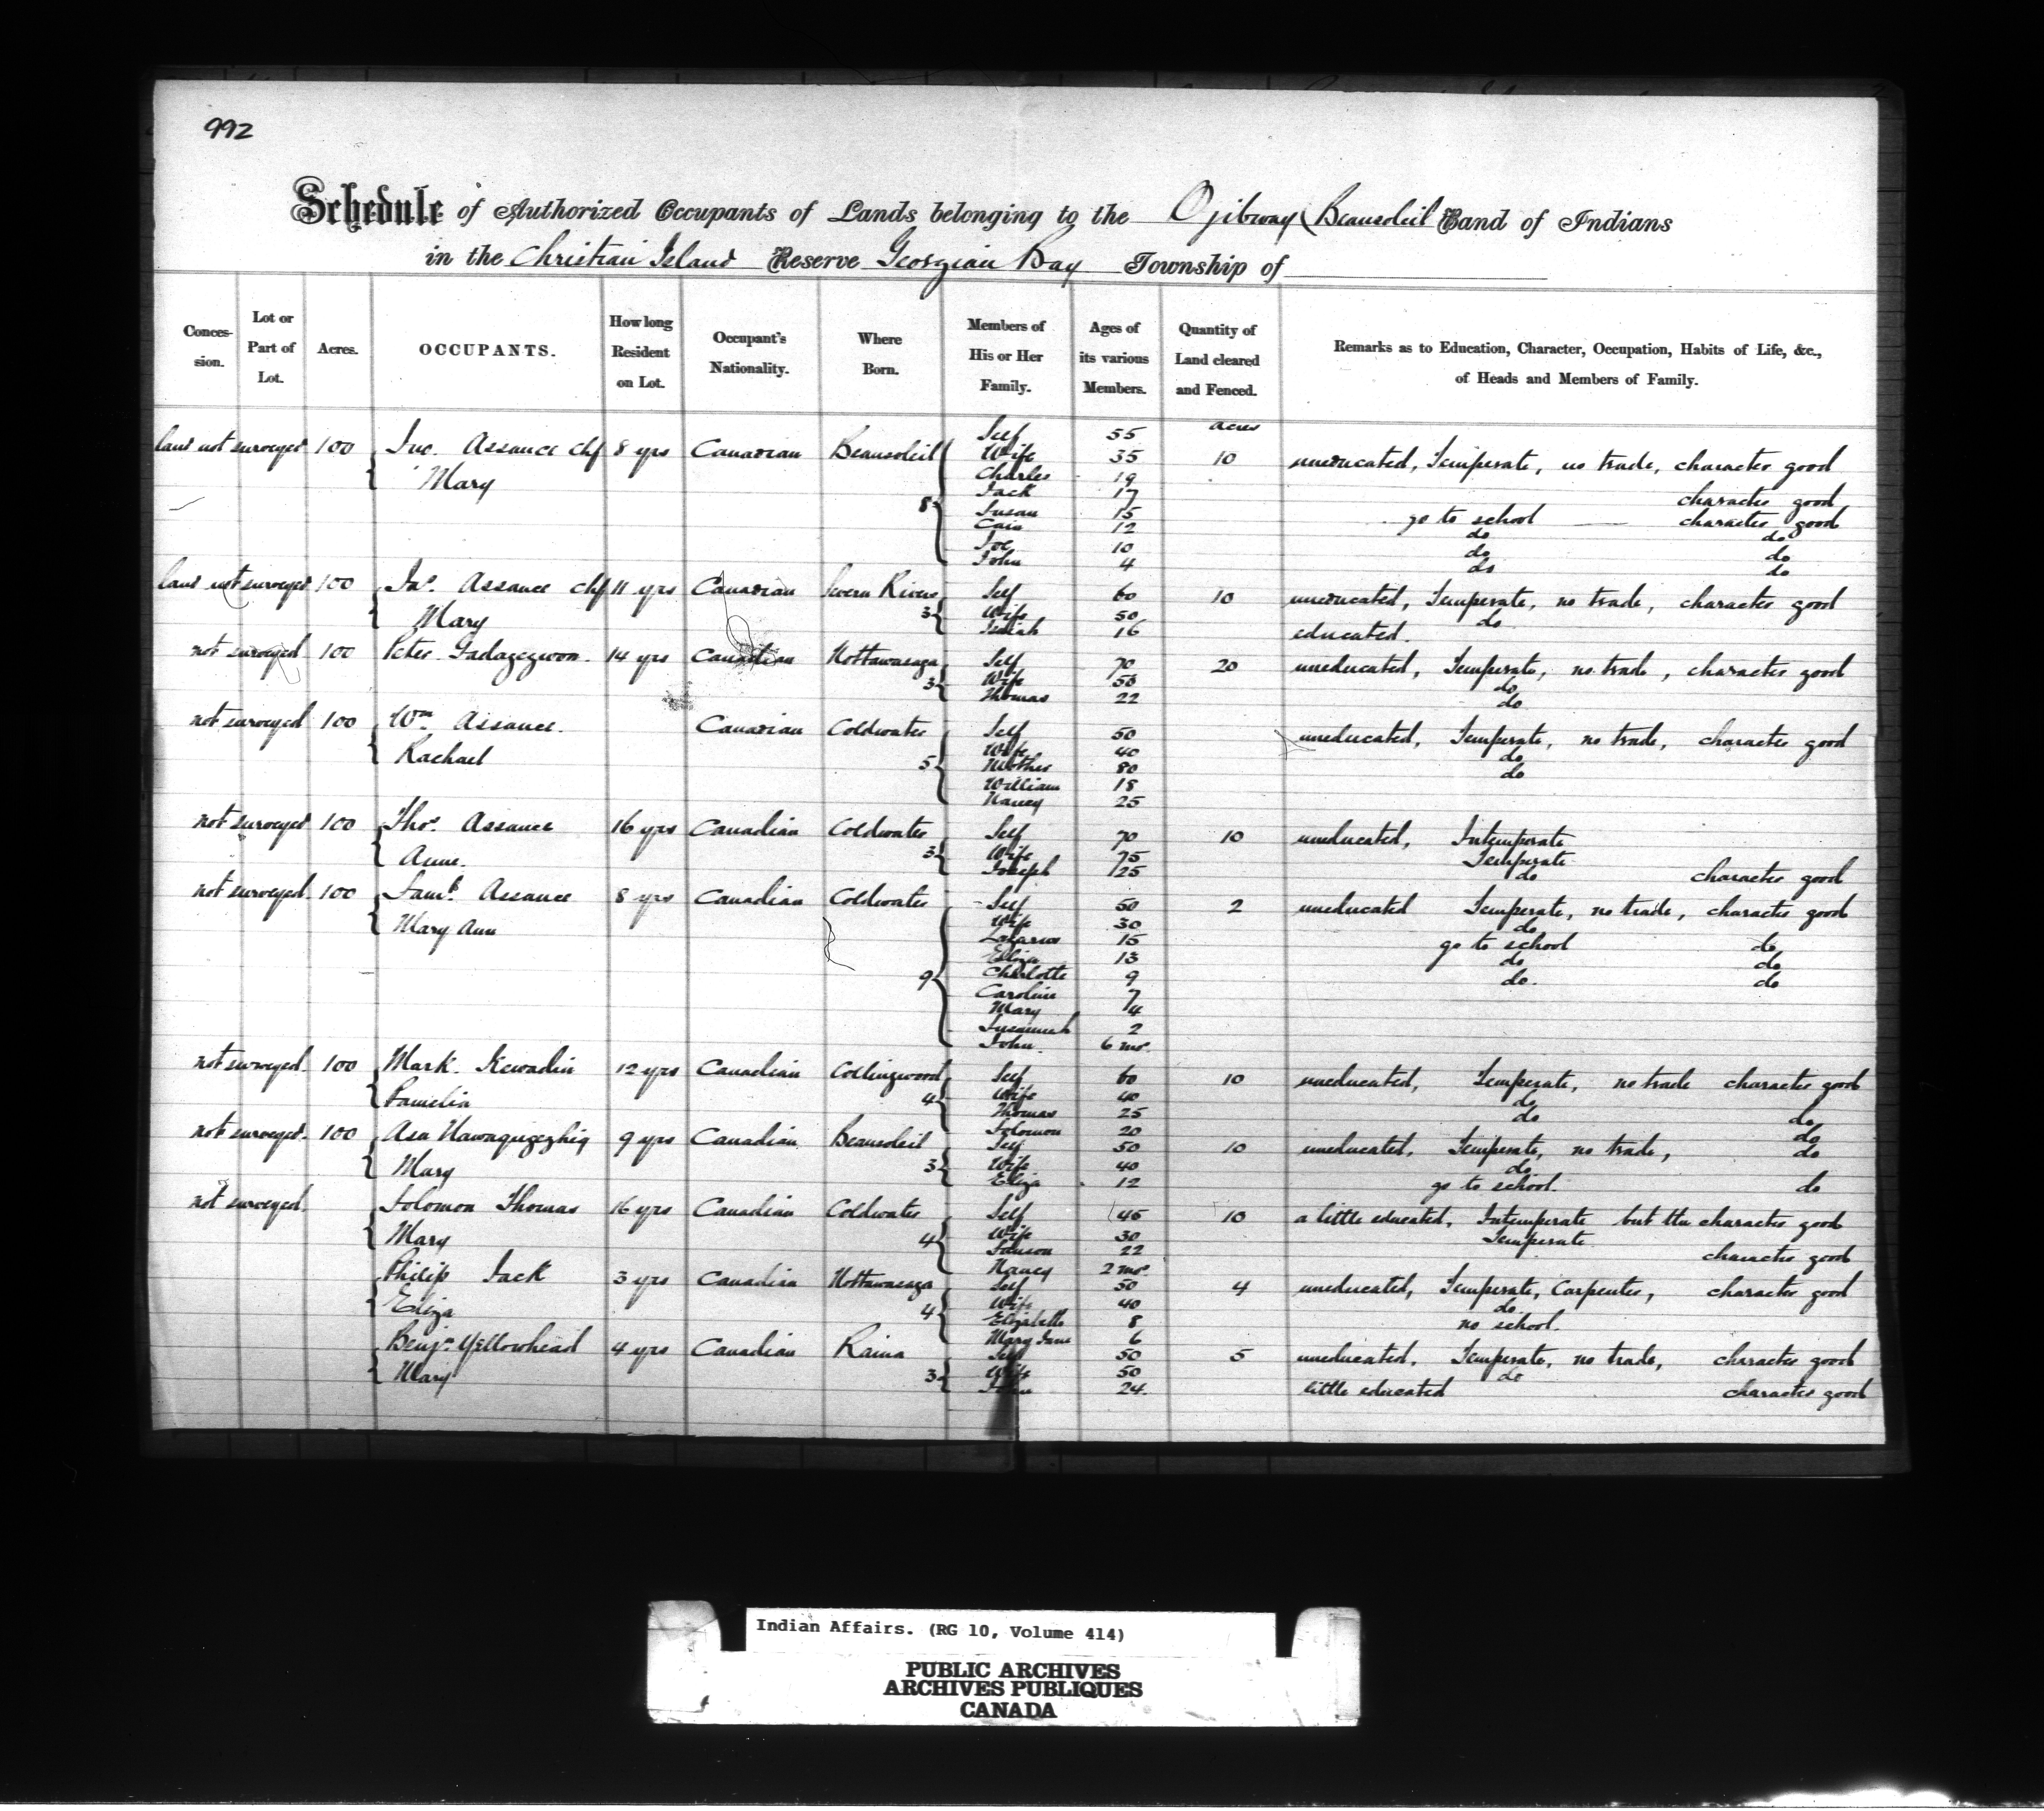 992
Schedule of Authorized Occupants of Lands belonging to the Ojibway (Beausoleil Band of Indians
in the Christian Island Reserve Georgian Bay Township of
Conces-sion. Lot or Part of Lot. Acres. OCCUPANTS. How long Resident on Lot. Occupant's Nationality. Where Born. Members of His or Her Family. Ages of its various Members. Quantity of Land cleared and Fenced. Remarks as to Education, Character, Occupation, Habits of Life, &c., of Heads and Members of Family.
Self 55 acres
land not surveyed 100 Jno. Assance Chf 8 yrs Canadian Beausoleil Wife 35 10 uneducated, Temperate, no trade, character good
Mary Charles 19
Jack 17 character good
8 Susan 15 go to school character good
12 do do
Joe 10 do do
John 4 do do
land not surveyed 100 Jas. Assance Chf 11 yrs Canadian Severn River Self 60 10 uneducated, Temperate, no trade, character good
Mary 3 Wife 50 do
Isaiah 16 educated.
not surveyed 100 Peter Gadagegwon. 14 yrs Canadian Nottawasaga Self 70 20 uneducated, Temperate, no trade, character good
3 Wife 50 do
Thomas 22 do
not surveyed 100 Wm. Assance. Canadian Coldwater Self 50 uneducated, Temperate, no trade, character good
Rachael Wife 40 do
5 Mother 80 do
William 18
Nancy 25
not surveyed 100 Thos. Assance 16 yrs Canadian Coldwater Self 70 10 uneducated, Intemperate
Anne. 3 Wife 75 Temperate
Joseph 25 do character good
not surveyed. 100 Saml. Assance 8 yrs Canadian Coldwater Self 50 2 uneducated Temperate, no trade, character good
Mary Ann Wife 30 do
Lazarus 15 go to school do
Eliza 13 do do
9 Charlotte 9 do. do
Caroline 7
Mary 4
Susannah 2
John. 6 mos.
not surveyed. 100 Mark Kewadin 12 yrs Canadian Collingwood Self 60 10 uneducated, Temperate, no trade character good
Pamelia 4 Wife 40 do
Thomas 25 do do
Solomon 20 do
not surveyed. 100 Asa Nawaqugezhig 9 yrs Canadian Beausoleil Self 50 10 uneducated, Temperate, no trade, do
Mary 3 Wife 40 do
Eliza 12 go to school. do
not surveyed. Solomon Thomas 16 yrs Canadian Coldwater Self 45 10 a little educated, Intemperate but character good
Mary 4 Wife 30 Temperate
Samson 22 character good
Nancy 2 mos.
Philip Jack 3 yrs Canadian Nottawasaga Self 50 4 uneducated, Temperate, Carpenter, character good
Eliza 4 Wife 40 do.
Elizabeth 8 no school.
Mary Jane 6
Benjn. Yellowhead 4 yrs Canadian Rama Self 50 5 uneducated, Temperate, no trade, character good
Mary 3 Wife 50 do
John 24. little educated character good
Indian Affairs. (RG 10, Volume 414)
PUBLIC ARCHIVES
ARCHIVES PUBLIQUES
CANADA